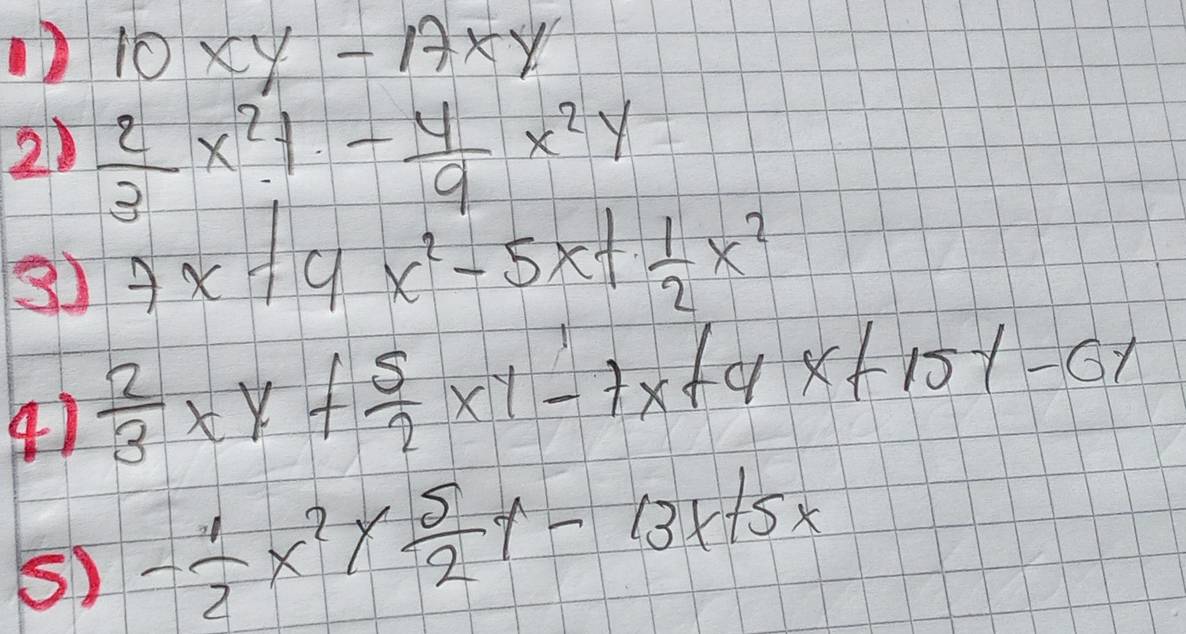 1) 10xy - 17xy
2) 2/3 x²y - 4/9 x²y
3) 7x + 9x² - 5x + 1/2 x²
4) 2/3 xy + 5/2 xy - 7x + 9x + 15y - 6y
5) -1/2 x²y 5/2 y - 13x + 5x